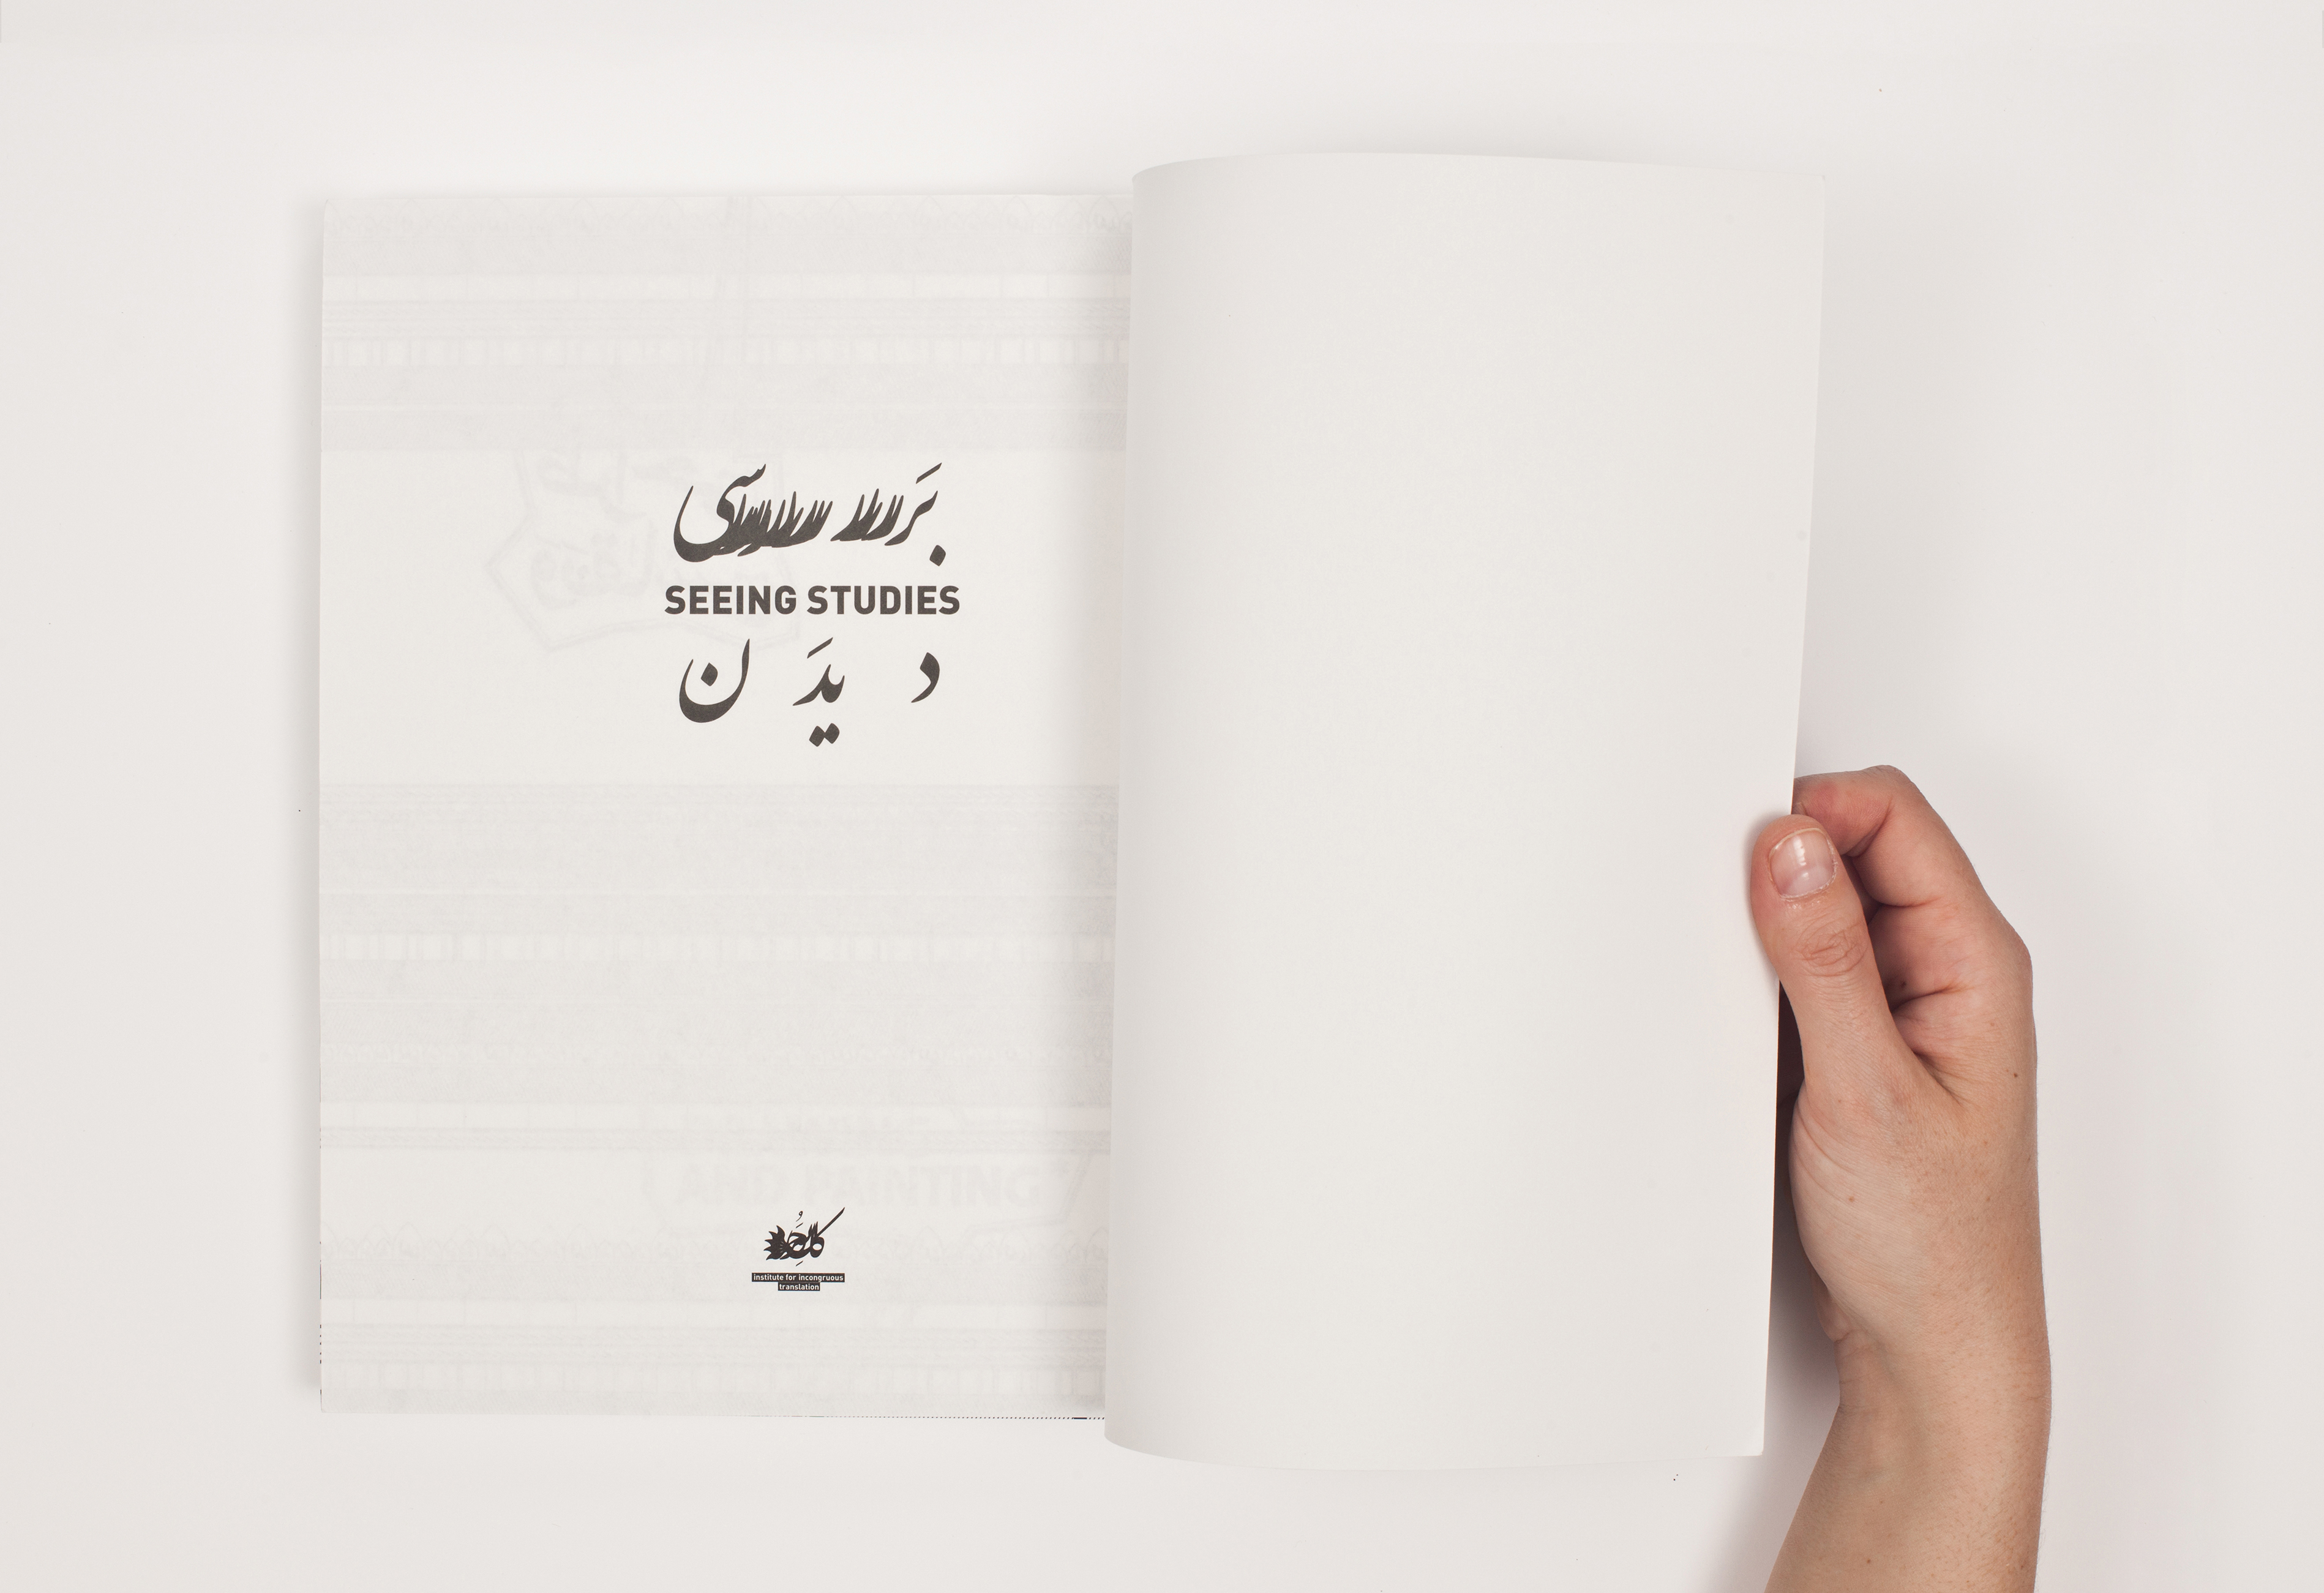 بَررسی
SEEING STUDIES
دیدَن
institute for incongruous
translation
AND PAINTING